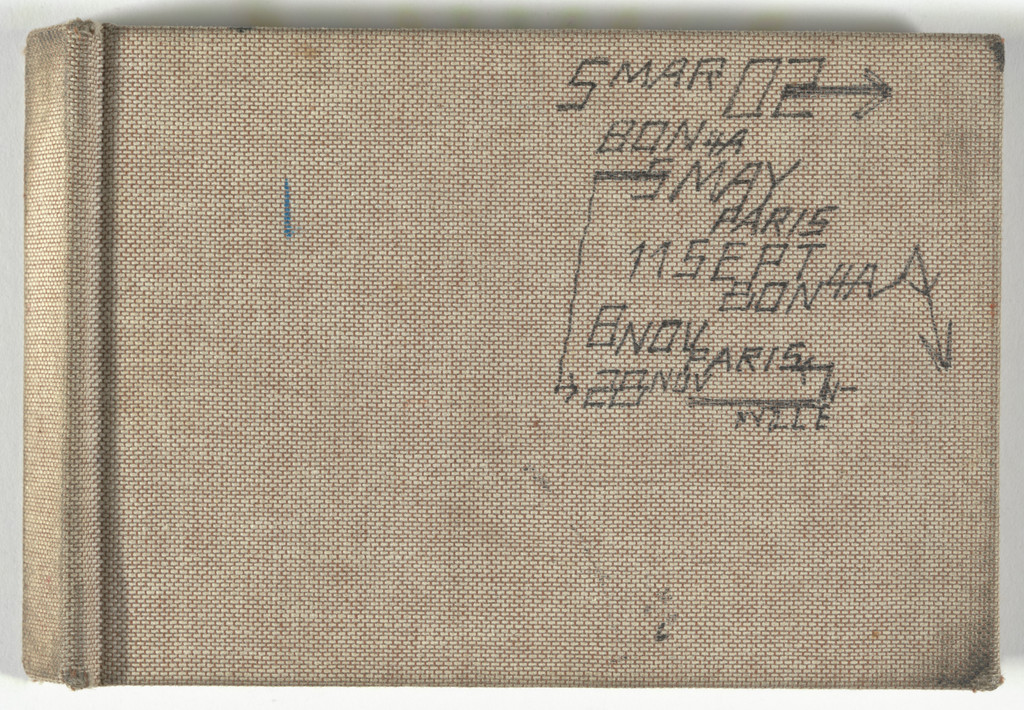 5 MAR 02
BON 4A
5 MAY
PARIS
11 SEPT
BON 4A
8 NOV
PARIS
28 NOV